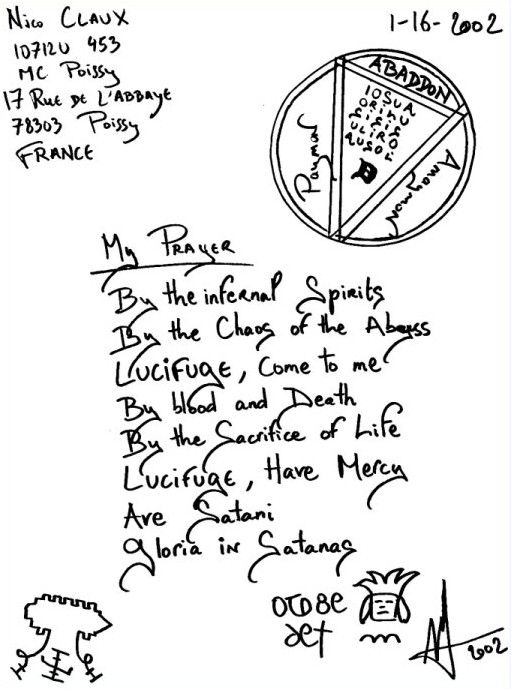 Nico CLAUX
10712U 453
MC Poissy
17 Rue DE L'ABBAYE
78303 Poissy
FRANCE
1-16-2002
ABADDON
Paymon
Amaymon
IOSUA
My PRAYER
By the infernal Spirits
By the Chaos of the Abyss
LUCIFUGE, Come to me
By blood and Death
By the Sacrifice of Life
LUCIFUGE, Have Mercy
Ave Satani
Gloria in Satanas
2002